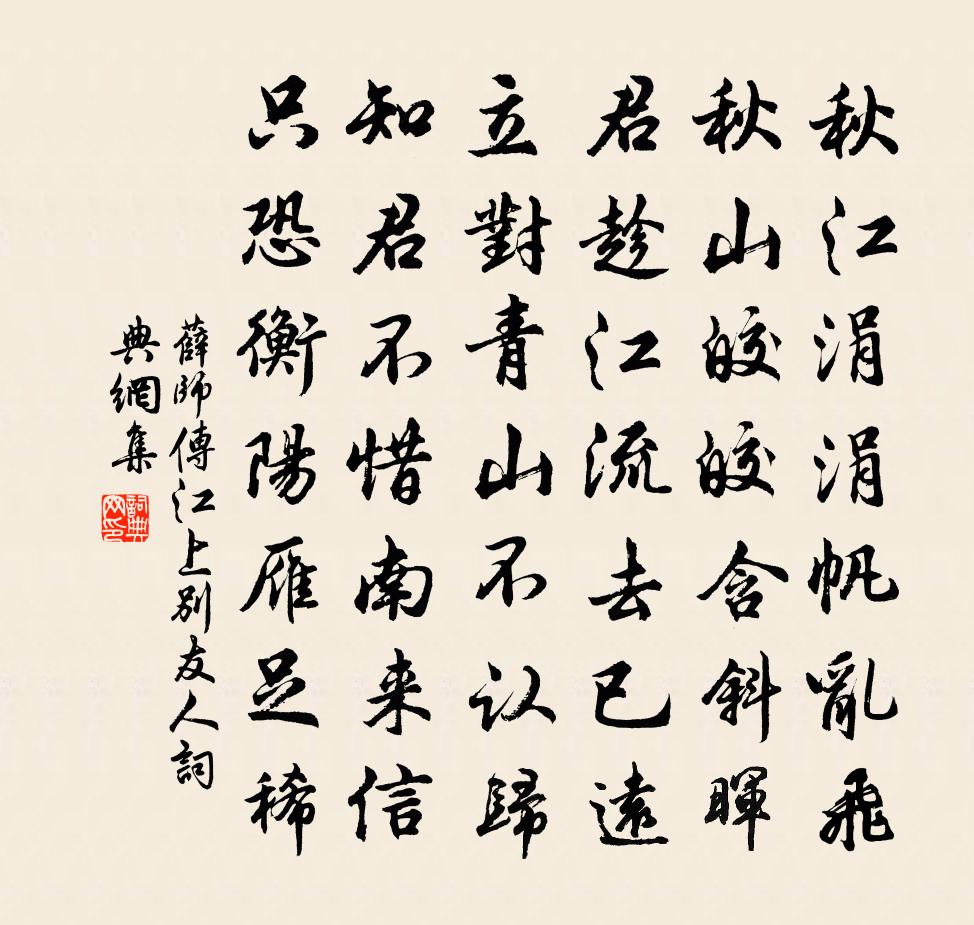 秋江涓涓帆亂飛
秋山皎皎含斜暉
君趁江流去已遠
立對青山不认歸
知君不惜南来信
只恐衡陽雁足稀
薛師傅江上别友人詞
典網集
詞典網印